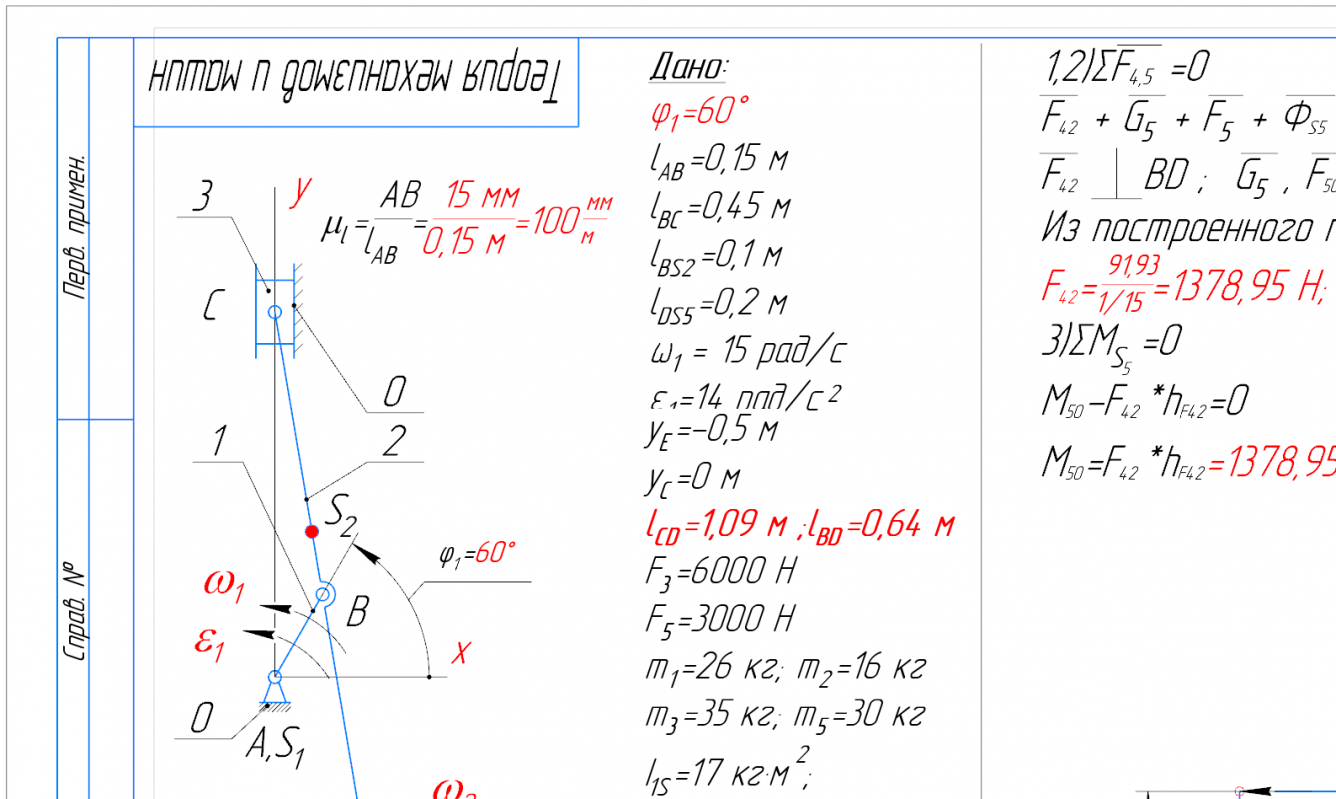 Теория механизмов и машин
Перв. примен.
Справ. №
3
y
μl = AB / lAB = 15 мм / 0,15 м = 100 мм/м
C
0
1
2
S2
φ1=60°
ω1
B
ε1
x
0
A,S1
ω2
Дано:
φ1=60°
lAB=0,15 м
lBC=0,45 м
lBS2=0,1 м
lDS5=0,2 м
ω1 = 15 рад/с
ε1=14 рад/с2
yE=–0,5 м
yC=0 м
lCD=1,09 м ;lBD=0,64 м
F3=6000 Н
F5=3000 Н
m1=26 кг; m2=16 кг
m3=35 кг; m5=30 кг
l1S=17 кг·м2;
1,2)ΣF4,5 =0
F42 + G5 + F5 + ΦS5
F42 ⊥ BD ; G5 , F50
Из построенного
F42= 91,93 / 1/15 =1378,95 Н;
3)ΣMS5 =0
M50–F42 *hF42=0
M50=F42 *hF42=1378,95